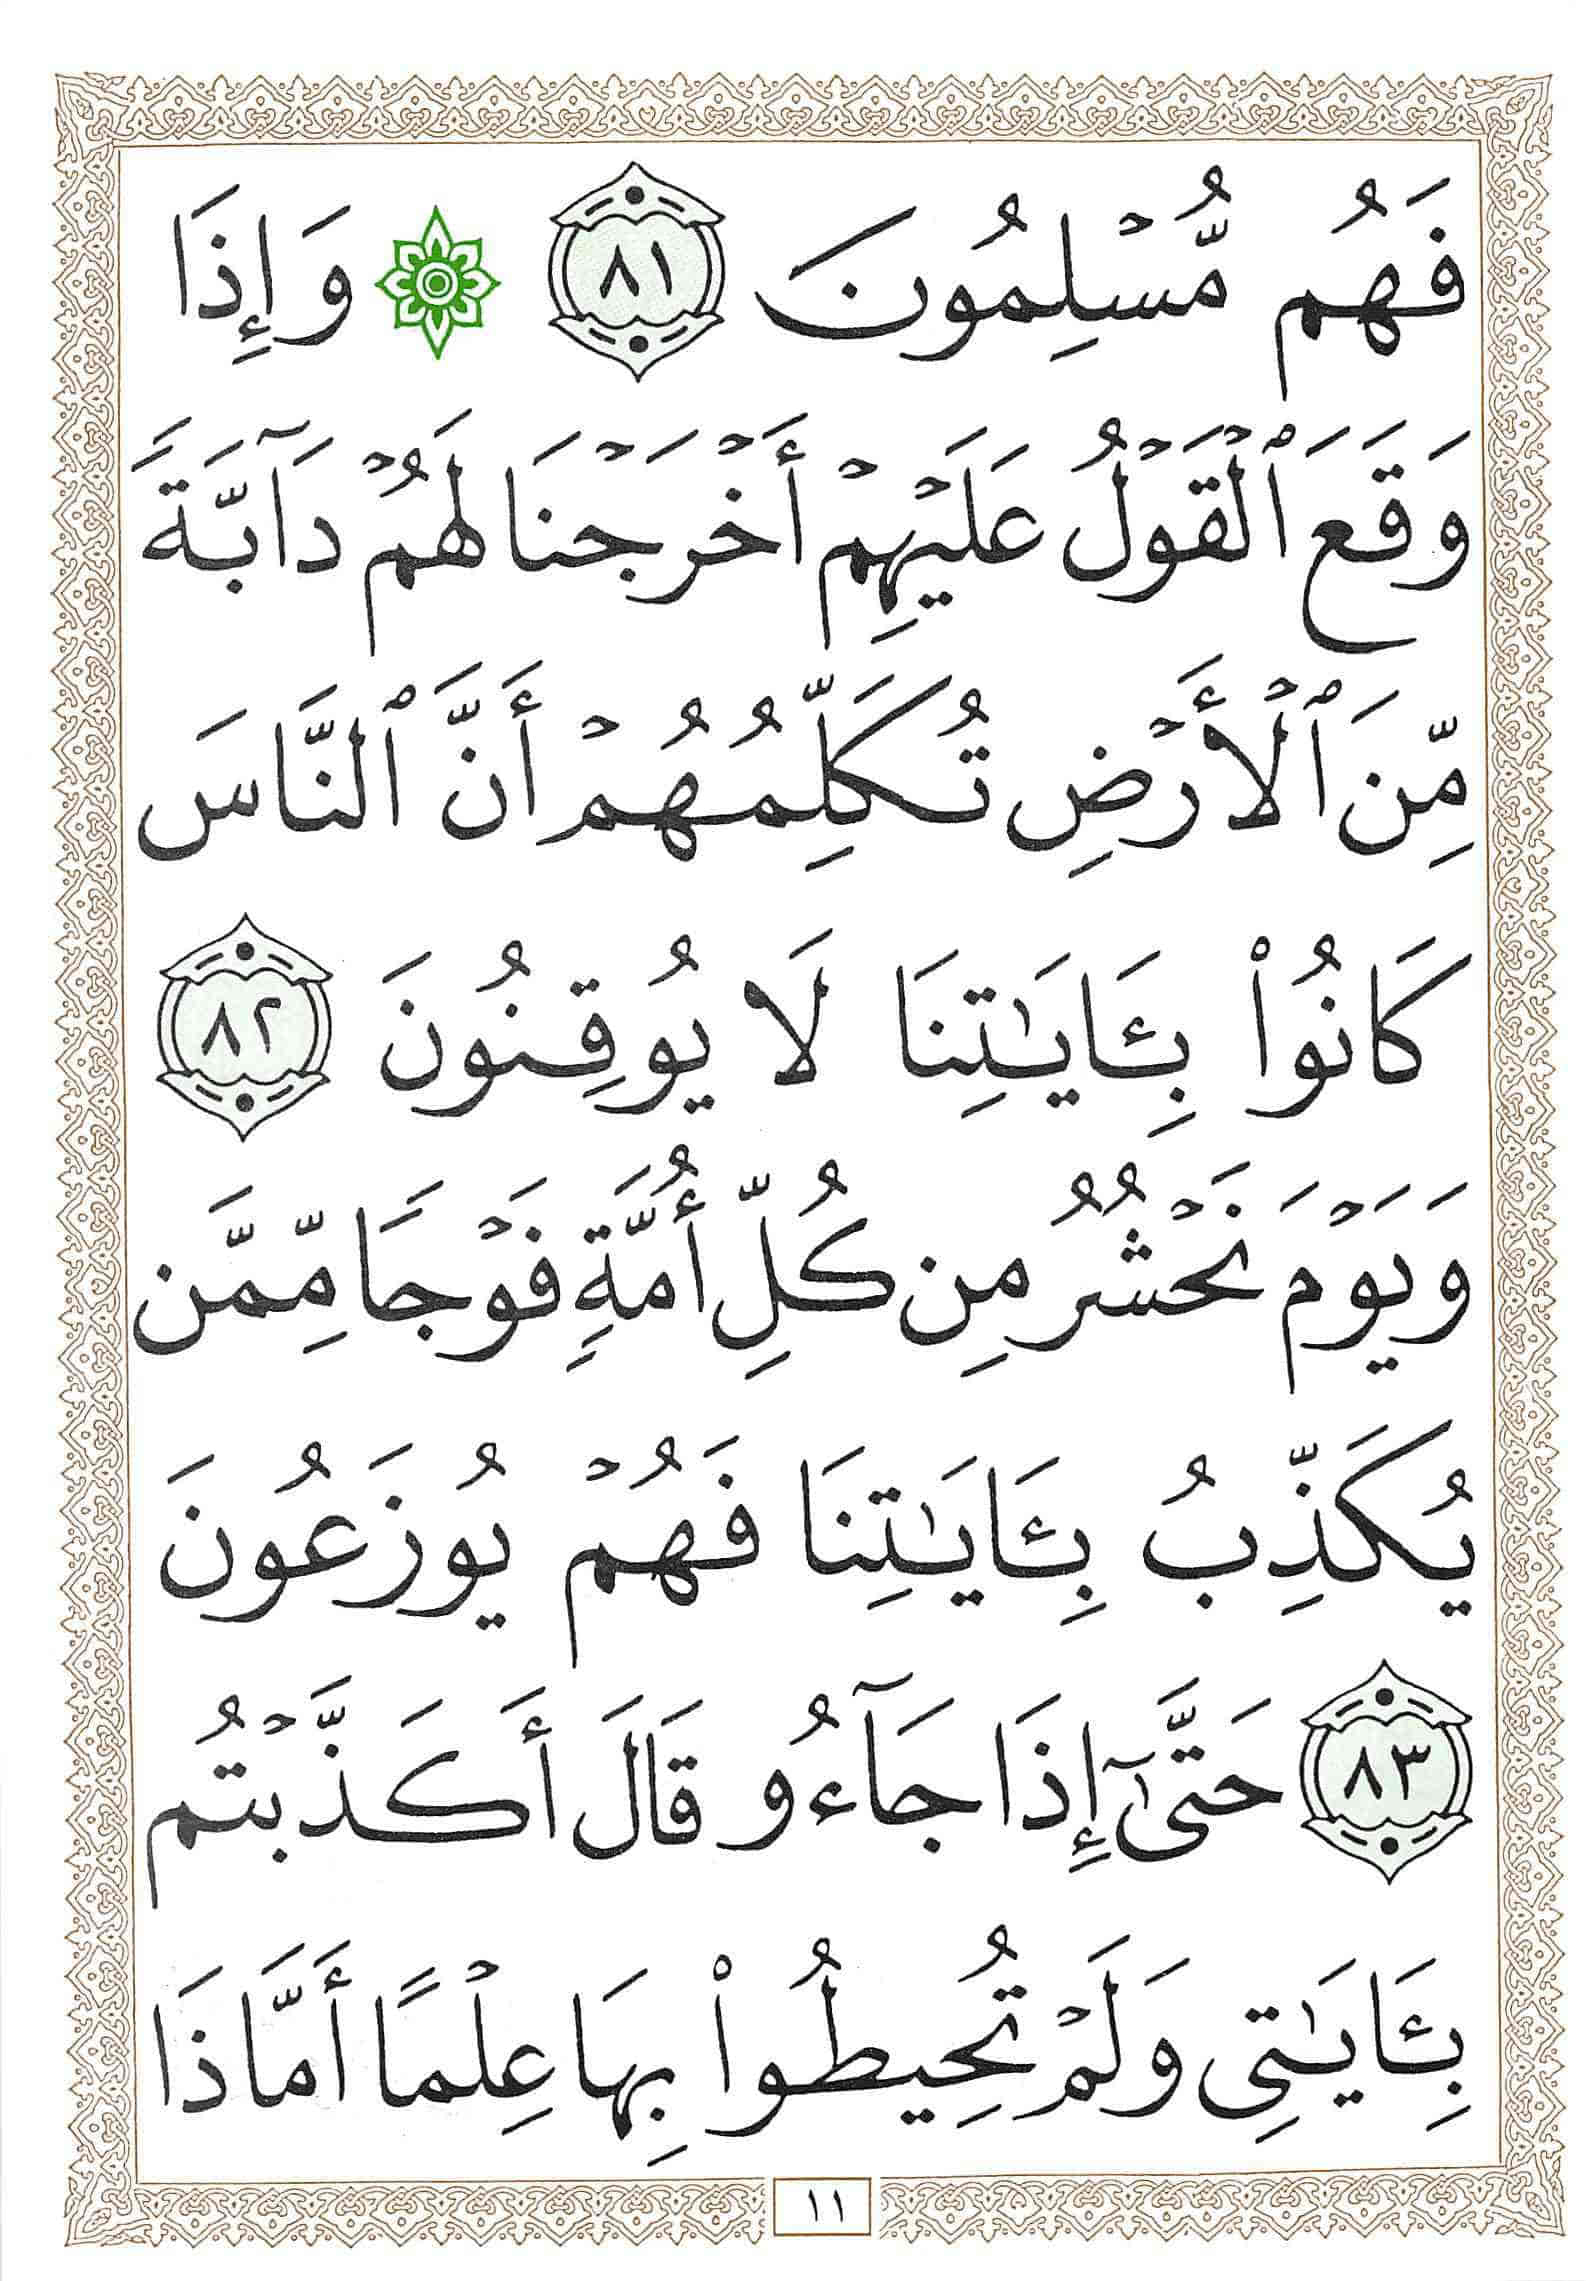 فَهُم مُّسۡلِمُونَ ٨١ ۞ وَإِذَا
وَقَعَ ٱلۡقَوۡلُ عَلَيۡهِمۡ أَخۡرَجۡنَا لَهُمۡ دَآبَّةٗ
مِّنَ ٱلۡأَرۡضِ تُكَلِّمُهُمۡ أَنَّ ٱلنَّاسَ
كَانُواْ بِـَٔايَٰتِنَا لَا يُوقِنُونَ ٨٢
وَيَوۡمَ نَحۡشُرُ مِن كُلِّ أُمَّةٖ فَوۡجٗا مِّمَّن
يُكَذِّبُ بِـَٔايَٰتِنَا فَهُمۡ يُوزَعُونَ
٨٣ حَتَّىٰٓ إِذَا جَآءُو قَالَ أَكَذَّبۡتُم
بِـَٔايَٰتِي وَلَمۡ تُحِيطُواْ بِهَا عِلۡمًا أَمَّاذَا
١١